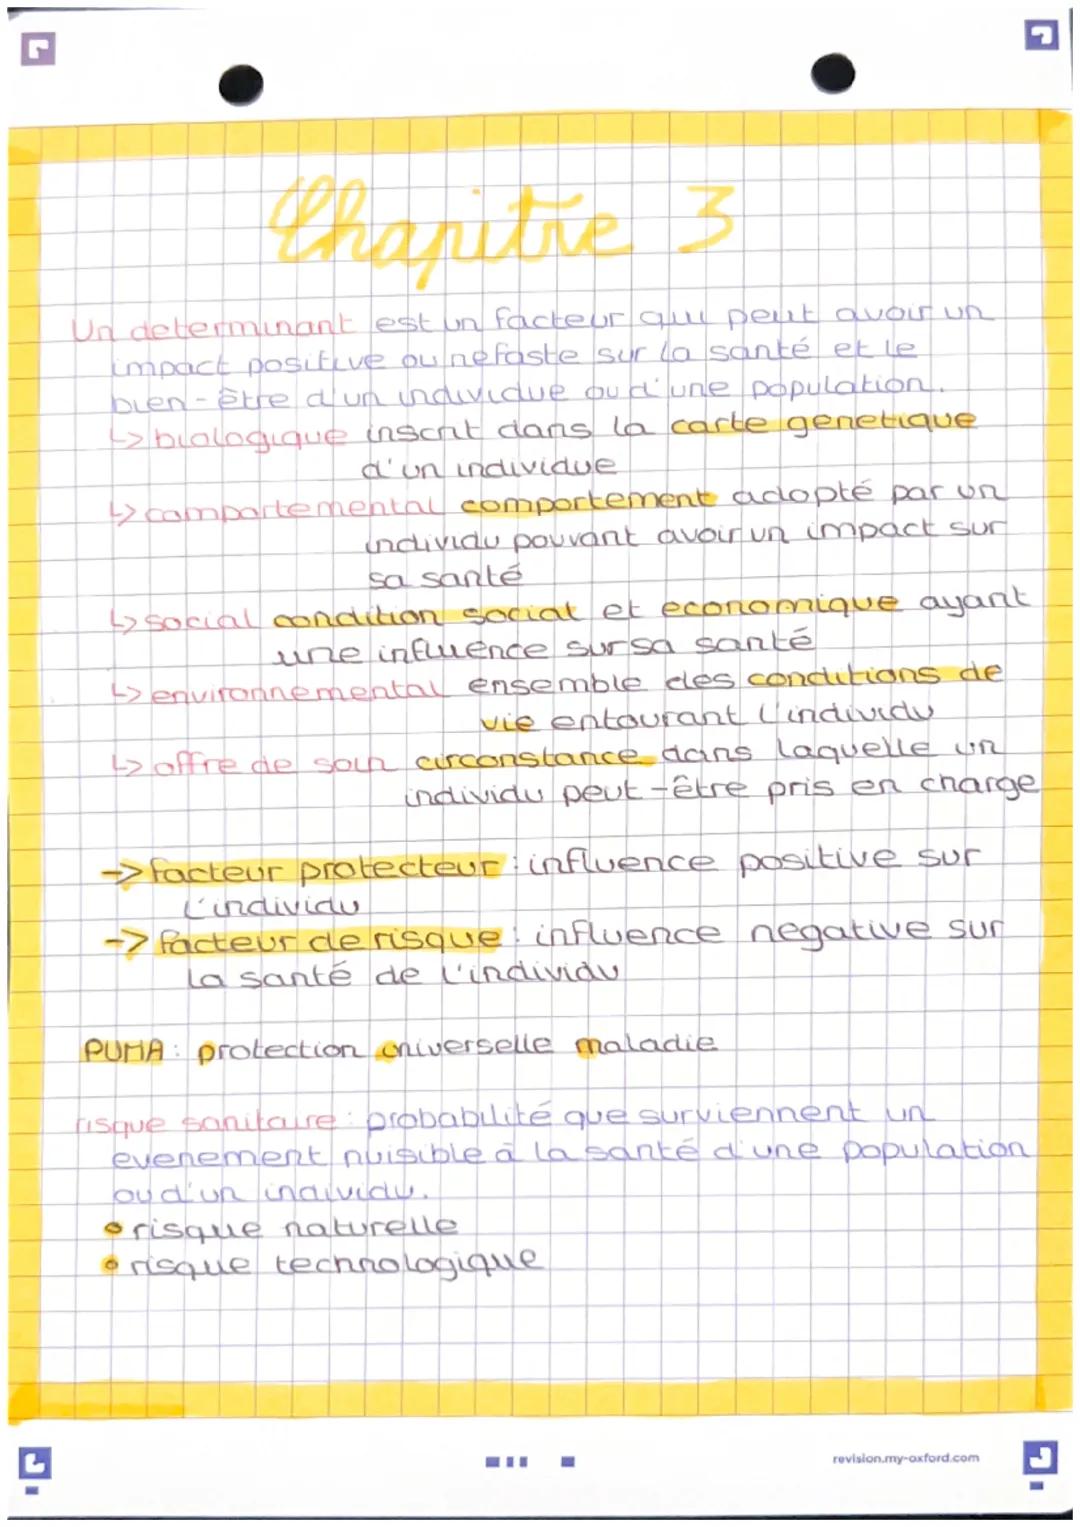 Chapitre 3
Un determinant est un facteur qui peut avoir un
impact positive ou nefaste sur la santé et le
bien-être d'un individue ou d'une population.
↳ biologique inscrit dans la carte genetique
d'un individue
↳ comportemental comportement adopté par un
individu pouvant avoir un impact sur
sa santé
↳ social condition social et economique ayant
une influence sur sa santé
↳ environnemental ensemble des conditions de
vie entourant l'individu
↳ offre de soin circonstance dans laquelle un
individu peut-être pris en charge
-> facteur protecteur : influence positive sur
l'individu
-> facteur de risque : influence negative sur
la santé de l'individu
PUMA : protection universelle maladie
risque sanitaire : probabilité que surviennent un
evenement nuisible à la santé d'une population
ou d'un individu.
• risque naturelle
• risque technologique
revision.my-oxford.com